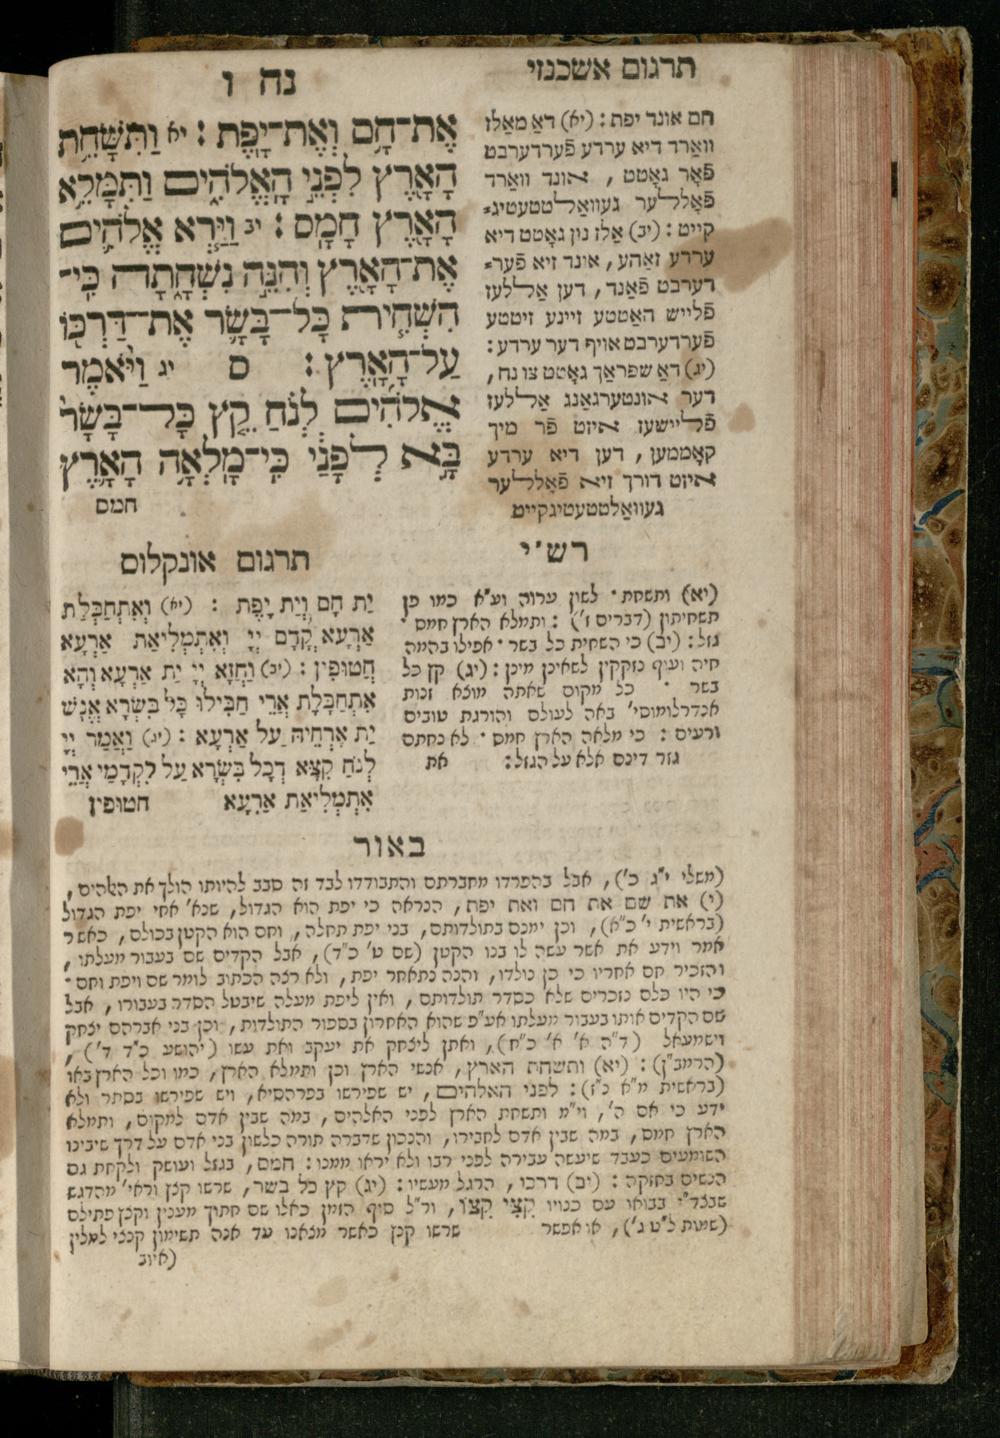 תרגום אשכנזי
נח ו
אֶת־חָ֥ם וְאֶת־יָֽפֶת : יא וַתִּשָּׁחֵ֥ת
הָאָ֖רֶץ לִפְנֵ֣י הָֽאֱלֹהִ֑ים וַתִּמָּלֵ֥א
הָאָ֖רֶץ חָמָֽס : יב וַיַּ֧רְא אֱלֹהִ֛ים
אֶת־הָאָ֖רֶץ וְהִנֵּ֣ה נִשְׁחָ֑תָה כִּֽי־
הִשְׁחִ֧ית כָּל־בָּשָׂ֛ר אֶת־דַּרְכּ֖וֹ
עַל־הָאָֽרֶץ : ס יג וַיֹּ֨אמֶר
אֱלֹהִ֜ים לְנֹ֗חַ קֵ֤ץ כָּל־בָּשָׂר֙
בָּ֣א לְפָנַ֔י כִּֽי־מָלְאָ֥ה הָאָ֛רֶץ
חמס
חם אונד יפת : (יא) דאַ מאַלז
וואַרד דיא ערדע פֿערדערבט
פֿאָר גאָטט , אונד וואַרד
פֿאָללער געוואַלטטעטיג=
קייט : (יב) אַלז נון גאָטט דיא
ערדע זאַהע , אונד זיא פֿער=
דערבט פֿאַנד , דען אַללעז
פֿלייש האַטטע זיינע זיטטע
פֿערדערבט אויף דער ערדע :
(יג) דאַ שפראַך גאָטט צו נח ,
דער אונטערגאַנג אַללעז
פֿליישעז איזט פֿר מיך
קאָממען , דען דיא ערדע
איזט דורך זיא פֿאָללער
געוואַלטטעטיגקייט
רש״י
(יא) ותשחת · לשון ערוה וע״א כמו פן
תשחיתון (דברים ד׳) : ותמלא הארץ חמס ·
גזל : (יב) כי השחית כל בשר · אפילו בהמה
חיה ועוף נזקקין לשאינן מינן : (יג) קץ כל
בשר · כל מקום שאתה מוצא זנות
אנדרלומוסי׳ באה לעולם והורגת טובים
ורעים : כי מלאה הארץ חמס · לא נחתם
גזר דינם אלא על הגזל : את
תרגום אונקלוס
יַת חָם וְיַת יָפֶת : (יא) וְאִתְחַבָּלַת
אַרְעָא קֳדָם יְיָ וְאִתְמְלִיאַת אַרְעָא
חֲטוּפִין : (יב) וַחֲזָא יְיָ יַת אַרְעָא וְהָא
אִתְחַבָּלַת אֲרֵי חַבִּילוּ כָּל בִּשְׂרָא אֱנָשׁ
יַת אָרְחֵיהּ עַל אַרְעָא : (יג) וַאֲמַר יְיָ
לְנֹחַ קִצָּא דְכָל בִּשְׂרָא עַל לִקְדָמַי אֲרֵי
אִתְמְלִיאַת אַרְעָא חטופין
באור
(משלי י״ג כ׳) , אבל בהפרדו מחברתם והתבודדו לבד זה סבב להיותו הולך את האלהים ,
(י) את שם את חם ואת יפת , הנראה כי יפת הוא הגדול , שנא׳ אחי יפת הגדול
(בראשית י׳ כ״א) , וכן ימנם בתולדותם , בני יפת תחלה , וחם הוא הקטן בכולם , כאשר
אמר וידע את אשר עשה לו בנו הקטן (שם ט׳ כ״ד) , אבל הקדים שם בעבור מעלתו ,
והזכיר חם אחריו כי כן נולדו , והנה נתאחר יפת , ולא רצה הכתוב לומר שם ויפת וחם ·
כי היו כלם נזכרים שלא כסדר תולדותם , ואין ליפת מעלה שיבטל הסדר בעבורו , אבל
שם הקדים אותו בעבור מעלתו אע״פ שהוא האחרון בספור התולדות , וכן בני אברהם יצחק
וישמעאל (ד״ה א׳ א׳ כ״ח) , ואתן ליצחק את יעקב ואת עשו (יהושע כ״ד ד׳) ,
(הרמב״ן) : (יא) ותשחת הארץ , אנשי הארץ וכן ותמלא הארץ , כמו וכל הארץ באו
(בראשית מ״א נ״ז) : לפני האלהים , יש שפירשו בפרהסיא , ויש שפירשו בסתר ולא
ידע כי אם ה׳ , וי״מ ותשחת הארץ לפני האלהים , במה שבין אדם למקום , ותמלא
הארץ חמס , במה שבין אדם לחבירו , והנכון שדברה תורה כלשון בני אדם על דרך שיבינו
השומעים כעבד שיעשה עבירה לפני רבו ולא יראו ממנו : חמס , בגזל ועושק ולקחת גם
הנשים בחזקה : (יב) דרכו , הרגל מעשיו : (יג) קץ כל בשר , שרשו קצץ וראי׳ מהדגש
שבצד״י בבואו עם כנויו קִצִּי קִצּוֹ , ור״ל סוף הזמן כאלו שם חתוך מענין וקצץ פתילם
(שמות ל״ט ג׳) , או אפשר שרשו קנץ כאשר מצאנו עד אנה תשימון קנצי למלין
(איוב